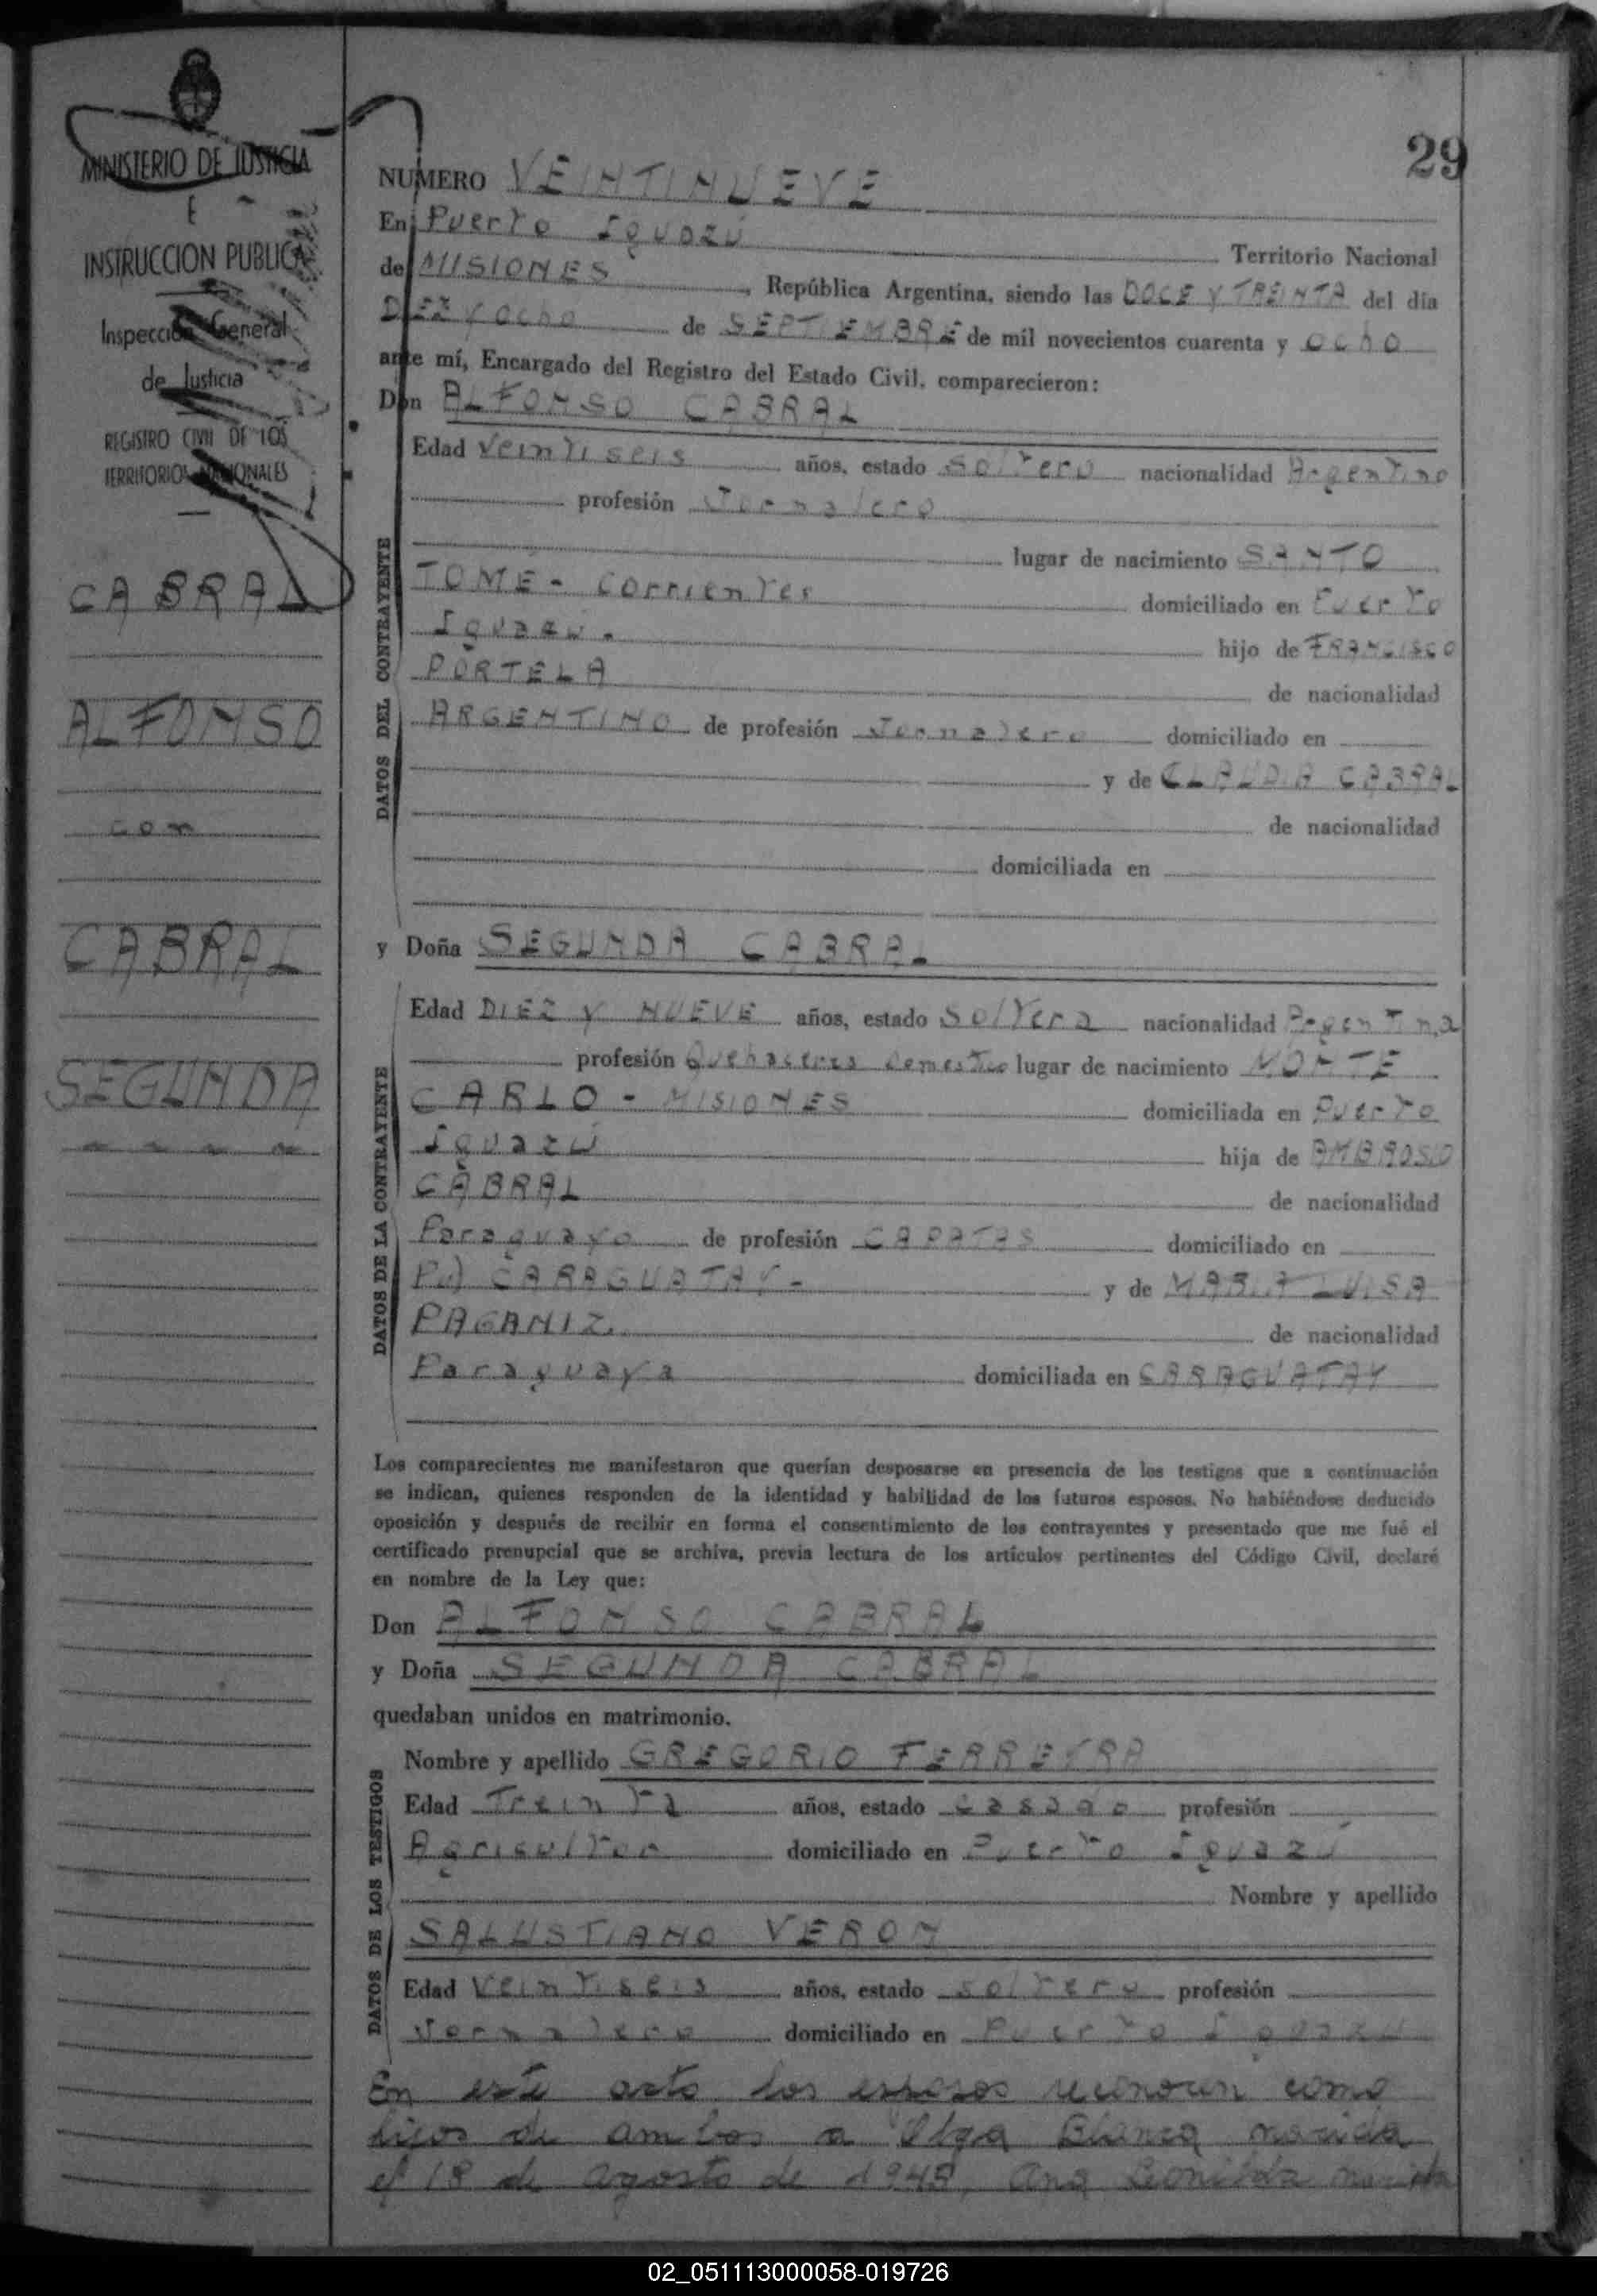 MINISTERIO DE JUSTICIA
E
INSTRUCCION PUBLICA
Inspección General
de Justicia
REGISTRO CIVIL DE LOS
TERRITORIOS NACIONALES
CABRAL
ALFONSO
con
CABRAL
SEGUNDA
29
NUMERO VEINTINUEVE
En Puerto Iguazú Territorio Nacional
de MISIONES, República Argentina, siendo las DOCE Y TREINTA del día
DIEZ y ocho de SEPTIEMBRE de mil novecientos cuarenta y ocho
ante mí, Encargado del Registro del Estado Civil, comparecieron:
Don ALFONSO CABRAL
DATOS DEL CONTRAYENTE
Edad Veintiseis años, estado soltero nacionalidad Argentino
profesión Jornalero
lugar de nacimiento SANTO
TOME - Corrientes domiciliado en Puerto
Iguazú. hijo de FRANCISCO
PORTELA de nacionalidad
ARGENTINO de profesión Jornalero domiciliado en
y de CLAUDIA CABRAL
de nacionalidad
domiciliada en
y Doña SEGUNDA CABRAL
DATOS DE LA CONTRAYENTE
Edad DIEZ Y NUEVE años, estado soltera nacionalidad Argentina
profesión Quehaceres Domestico lugar de nacimiento MONTE
CARLO - MISIONES domiciliada en Puerto
Iguazú hija de AMBROSIO
CABRAL de nacionalidad
Paraguayo de profesión CAPATAS domiciliado en
CARAGUATAY - y de MARIA LUISA
PAGANIZ de nacionalidad
Paraguaya domiciliada en CARAGUATAY
Los comparecientes me manifestaron que querían desposarse en presencia de los testigos que a continuación
se indican, quienes responden de la identidad y habilidad de los futuros esposos. No habiéndose deducido
oposición y después de recibir en forma el consentimiento de los contrayentes y presentado que me fué el
certificado prenupcial que se archiva, previa lectura de los artículos pertinentes del Código Civil, declaré
en nombre de la Ley que:
Don ALFONSO CABRAL
y Doña SEGUNDA CABRAL
quedaban unidos en matrimonio.
DATOS DE LOS TESTIGOS
Nombre y apellido GREGORIO FERREYRA
Edad Treinta años, estado casado profesión
Agricultor domiciliado en Puerto Iguazú
Nombre y apellido
SALUSTIANO VERON
Edad Veintiseis años, estado soltero profesión
Jornalero domiciliado en Puerto Iguazú
En este acto los esposos reconocen como
hijos de ambos a Olga Blanca nacida
el 18 de agosto de Ana Leonilda nacida
02_051113000058-019726